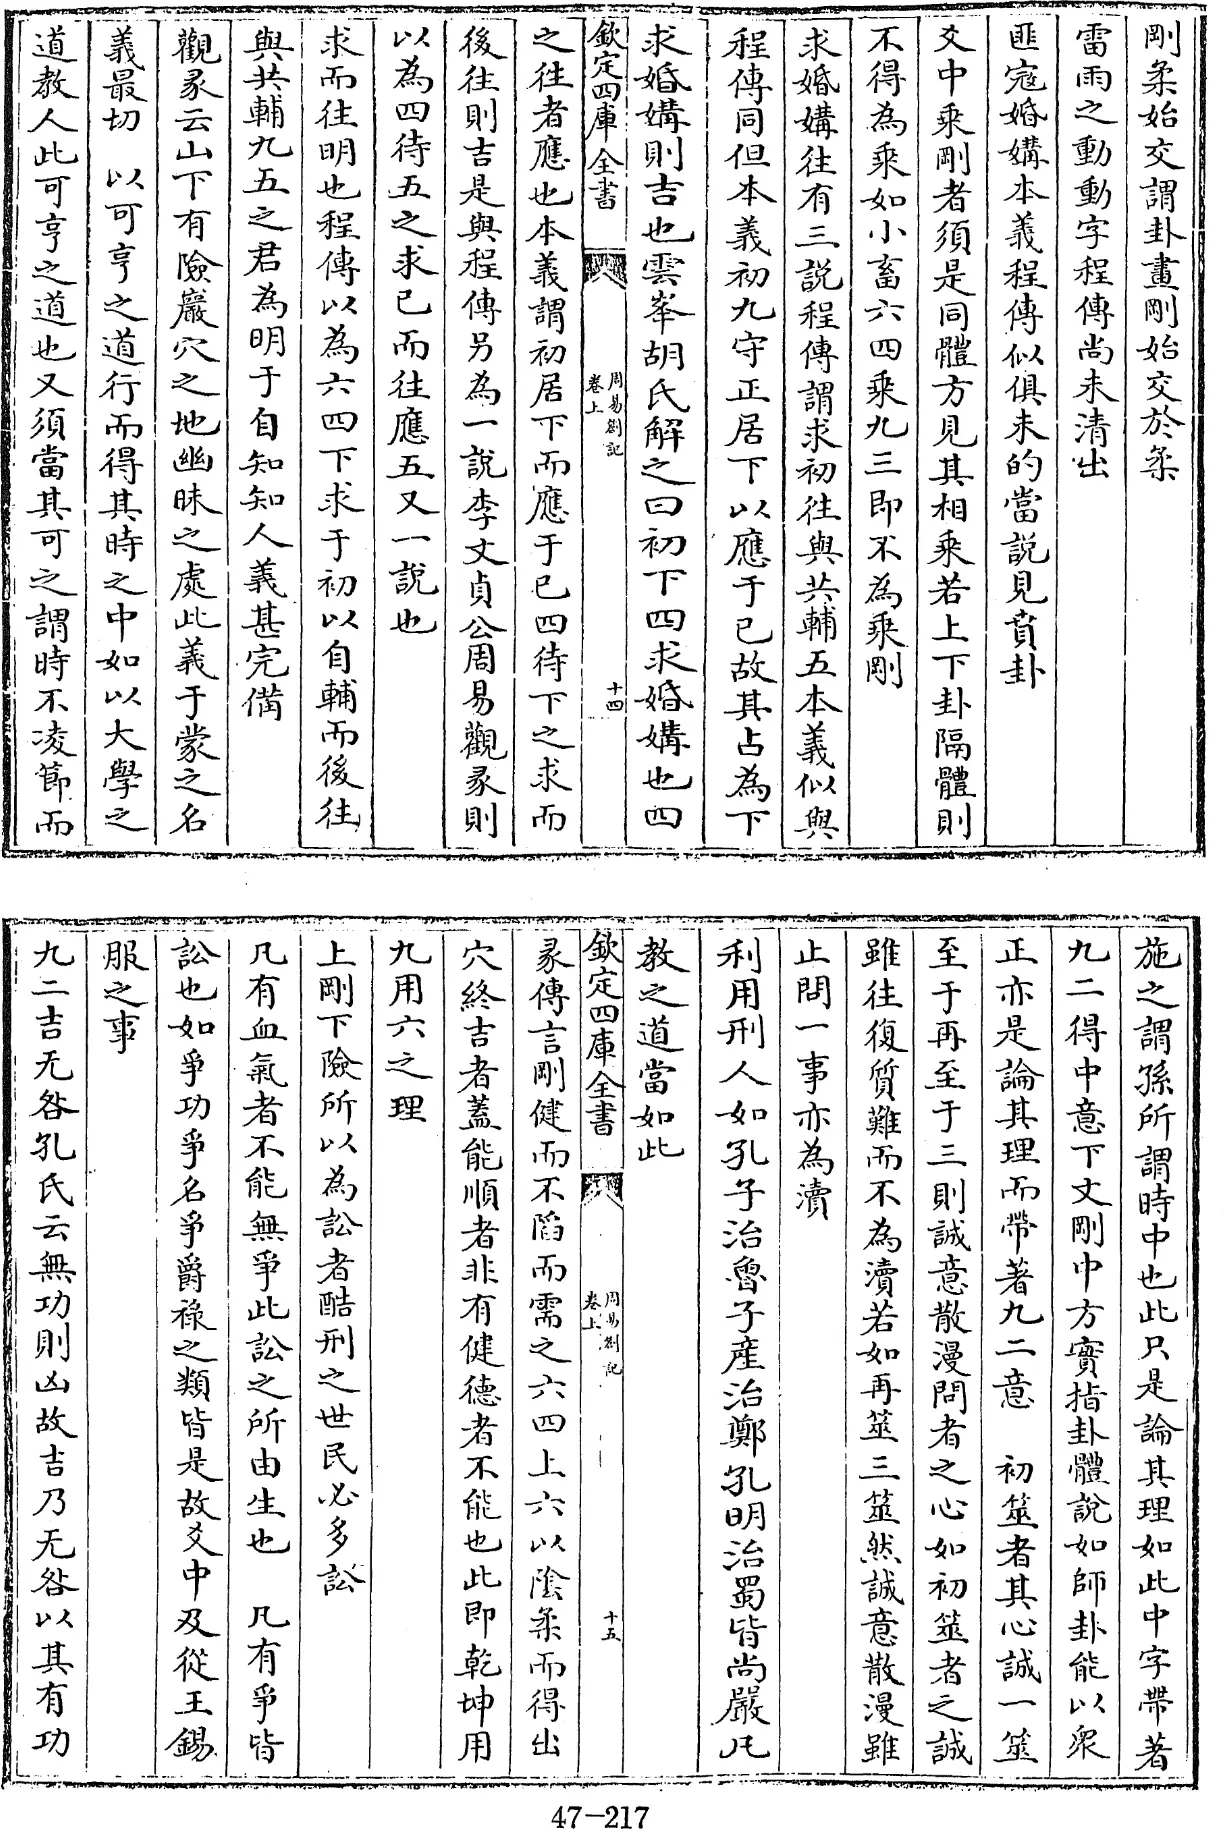 剛柔始交謂卦畫剛始交於柔
雷雨之動動字程傳尚未清出
匪寇婚媾本義程傳似俱未的當説見賁卦
爻中乘剛者須是同體方見其相乘若上下卦隔體則
不得為乘如小畜六四乘九三即不為乘剛
求婚媾往有三説程傳謂求初往與共輔五本義似與
程傳同但本義初九守正居下以應于已故其占為下
求婚媾則吉也雲峯胡氏解之曰初下四求婚媾也四
欽定四庫全書
周易劄記
卷上
十四
之往者應也本義謂初居下而應于已四待下之求而
後往則吉是與程傳另為一説李文貞公周易觀彖則
以為四待五之求已而往應五又一説也
求而往明也程傳以為六四下求于初以自輔而後往
與共輔九五之君為明于自知知人義甚完備
觀彖云山下有險巖穴之地幽昧之處此義于蒙之名
義最切 以可亨之道行而得其時之中如以大學之
道教人此可亨之道也又須當其可之謂時不凌節而
施之謂孫所謂時中也此只是論其理如此中字帶著
九二得中意下文剛中方實指卦體說如師卦能以衆
正亦是論其理而帶著九二意 初筮者其心誠一筮
至于再至于三則誠意散漫問者之心如初筮者之誠
雖往復質難而不為瀆若如再筮三筮然誠意散漫雖
止問一事亦為瀆
利用刑人如孔子治魯子産治鄭孔明治蜀皆尚嚴凡
教之道當如此
欽定四庫全書
周易劄記
卷上
十五
彖傳言剛健而不陷而需之六四上六以陰柔而得出
穴終吉者蓋能順者非有健德者不能也此即乾坤用
九用六之理
上剛下險所以為訟者酷刑之世民必多訟
凡有血氣者不能無爭此訟之所由生也 凡有爭皆
訟也如爭功爭名爭爵祿之類皆是故爻中及從王錫
服之事
九二吉无咎孔氏云無功則凶故吉乃无咎以其有功
47-217